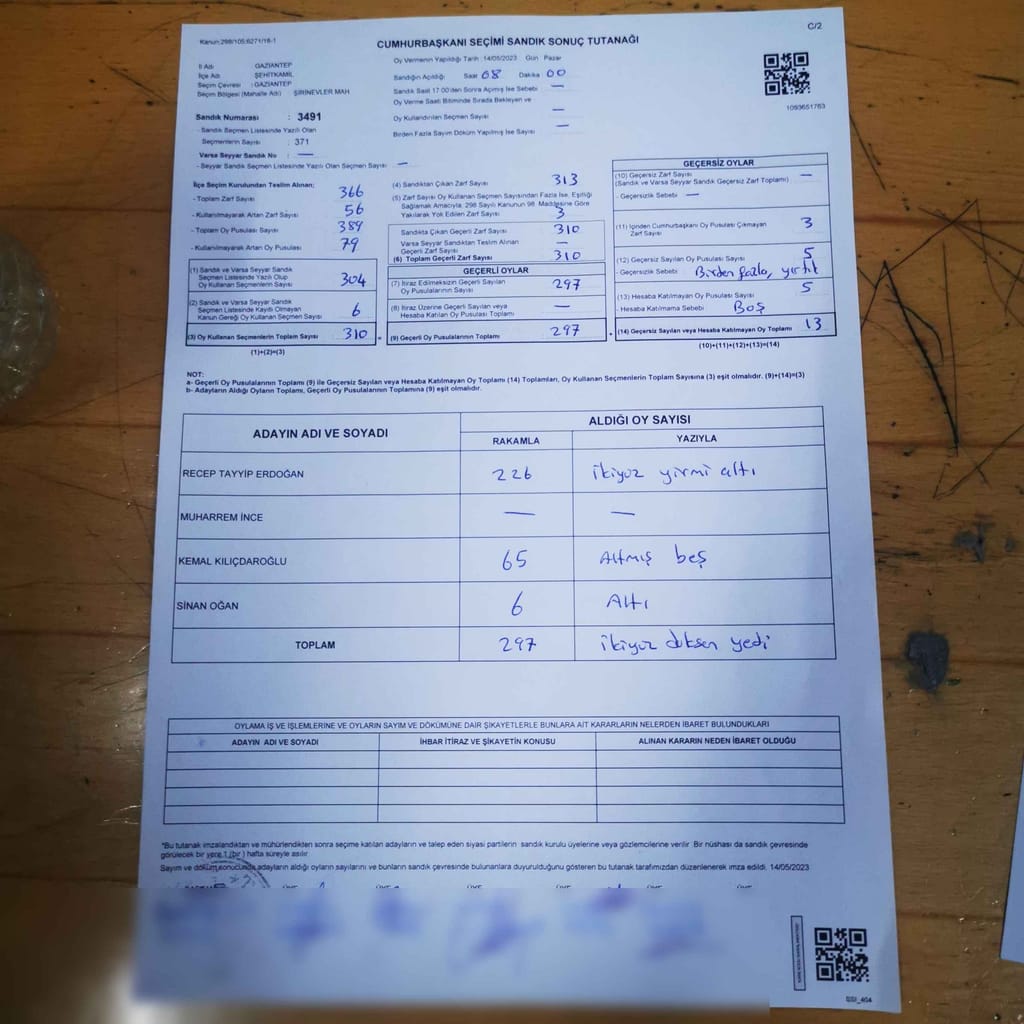 C/2
Kanun:298/105;6271/18-1
CUMHURBAŞKANI SEÇİMİ SANDIK SONUÇ TUTANAĞI
İl Adı : GAZİANTEP
İlçe Adı : ŞEHİTKAMİL
Seçim Çevresi : GAZİANTEP
Seçim Bölgesi (Mahalle Adı) : ŞİRİNEVLER MAH
Sandık Numarası : 3491
- Sandık Seçmen Listesinde Yazılı Olan
Seçmenlerin Sayısı : 371
Varsa Seyyar Sandık No : —
- Seyyar Sandık Seçmen Listesinde Yazılı Olan Seçmen Sayısı —
Oy Vermenin Yapıldığı Tarih : 14/05/2023 Gün Pazar
Sandığın Açıldığı Saat 08 Dakika 00
Sandık Saat 17:00'den Sonra Açımış İse Sebebi —
Oy Verme Saati Bitiminde Sırada Bekleyen ve
Oy Kullandırılan Seçmen Sayısı —
Birden Fazla Sayım Döküm Yapılmış İse Sayısı —
1093651763
İlçe Seçim Kurulundan Teslim Alınan;
- Toplam Zarf Sayısı 366
- Kullanılmayarak Artan Zarf Sayısı 56
- Toplam Oy Pusulası Sayısı 389
- Kullanılmayarak Artan Oy Pusulası 79
(1) Sandık ve Varsa Seyyar Sandık
Seçmen Listesinde Yazılı Olup
Oy Kullanan Seçmenlerin Sayısı 304
(2) Sandık ve Varsa Seyyar Sandık
Seçmen Listesinde Kaydı Olmayan
Kanun Gereği Oy Kullanan Seçmen Sayısı 6
(3) Oy Kullanan Seçmenlerin Toplam Sayısı 310 =
(1)+(2)=(3)
(4) Sandıktan Çıkan Zarf Sayısı 313
(5) Zarf Sayısı Oy Kullanan Seçmen Sayısından Fazla İse, Eşitliği
Sağlamak Amacıyla; 298 Sayılı Kanunun 98. Maddesine Göre
Yakılarak Yok Edilen Zarf Sayısı 3
Sandıkta Çıkan Geçerli Zarf Sayısı 310
Varsa Seyyar Sandıktan Teslim Alınan
Geçerli Zarf Sayısı —
(6) Toplam Geçerli Zarf Sayısı 310
GEÇERLİ OYLAR
(7) İtiraz Edilmeksizin Geçerli Sayılan
Oy Pusulalarının Sayısı 297
(8) İtiraz Üzerine Geçerli Sayılan veya
Hesaba Katılan Oy Pusulası Toplamı —
(9) Geçerli Oy Pusulalarının Toplamı 297 +
GEÇERSİZ OYLAR
(10) Geçersiz Zarf Sayısı —
(Sandık ve Varsa Seyyar Sandık Geçersiz Zarf Toplamı)
- Geçersizlik Sebebi —
(11) İçinden Cumhurbaşkanı Oy Pusulası Çıkmayan
Zarf Sayısı 3
(12) Geçersiz Sayılan Oy Pusulası Sayısı 5
- Geçersizlik Sebebi Birden fazla, yırtık
(13) Hesaba Katılmayan Oy Pusulası Sayısı 5
- Hesaba Katılmama Sebebi BOŞ
(14) Geçersiz Sayılan veya Hesaba Katılmayan Oy Toplamı 13
(10)+(11)+(12)+(13)=(14)
NOT:
a- Geçerli Oy Pusulalarının Toplamı (9) ile Geçersiz Sayılan veya Hesaba Katılmayan Oy Toplamı (14) Toplamları, Oy Kullanan Seçmenlerin Toplam Sayısına (3) eşit olmalıdır. (9)+(14)=(3)
b- Adayların Aldığı Oyların Toplamı, Geçerli Oy Pusulalarının Toplamına (9) eşit olmalıdır.
ADAYIN ADI VE SOYADI
ALDIĞI OY SAYISI
RAKAMLA YAZIYLA
RECEP TAYYİP ERDOĞAN 226 ikiyüz yirmi altı
MUHARREM İNCE — —
KEMAL KILIÇDAROĞLU 65 Altmış beş
SİNAN OĞAN 6 Altı
TOPLAM 297 ikiyüz doksan yedi
OYLAMA İŞ VE İŞLEMLERİNE VE OYLARIN SAYIM VE DÖKÜMÜNE DAİR ŞİKAYETLERLE BUNLARA AİT KARARLARIN NELERDEN İBARET BULUNDUKLARI
ADAYIN ADI VE SOYADI İHBAR İTİRAZ VE ŞİKAYETİN KONUSU ALINAN KARARIN NEDEN İBARET OLDUĞU
*Bu tutanak imzalandıktan ve mühürlendikten sonra seçime katılan adayların ve talep eden siyasi partilerin sandık kurulu üyelerine veya gözlemcilerine verilir. Bir nüshası da sandık çevresinde
görülecek bir yere 1 (bir) hafta süreyle asılır.
Sayım ve döküm sonucunda adayların aldığı oyların sayılarını ve bunların sandık çevresinde bulunanlara duyurulduğunu gösteren bu tutanak tarafımızdan düzenlenerek imza edildi. 14/05/2023
SSI_404